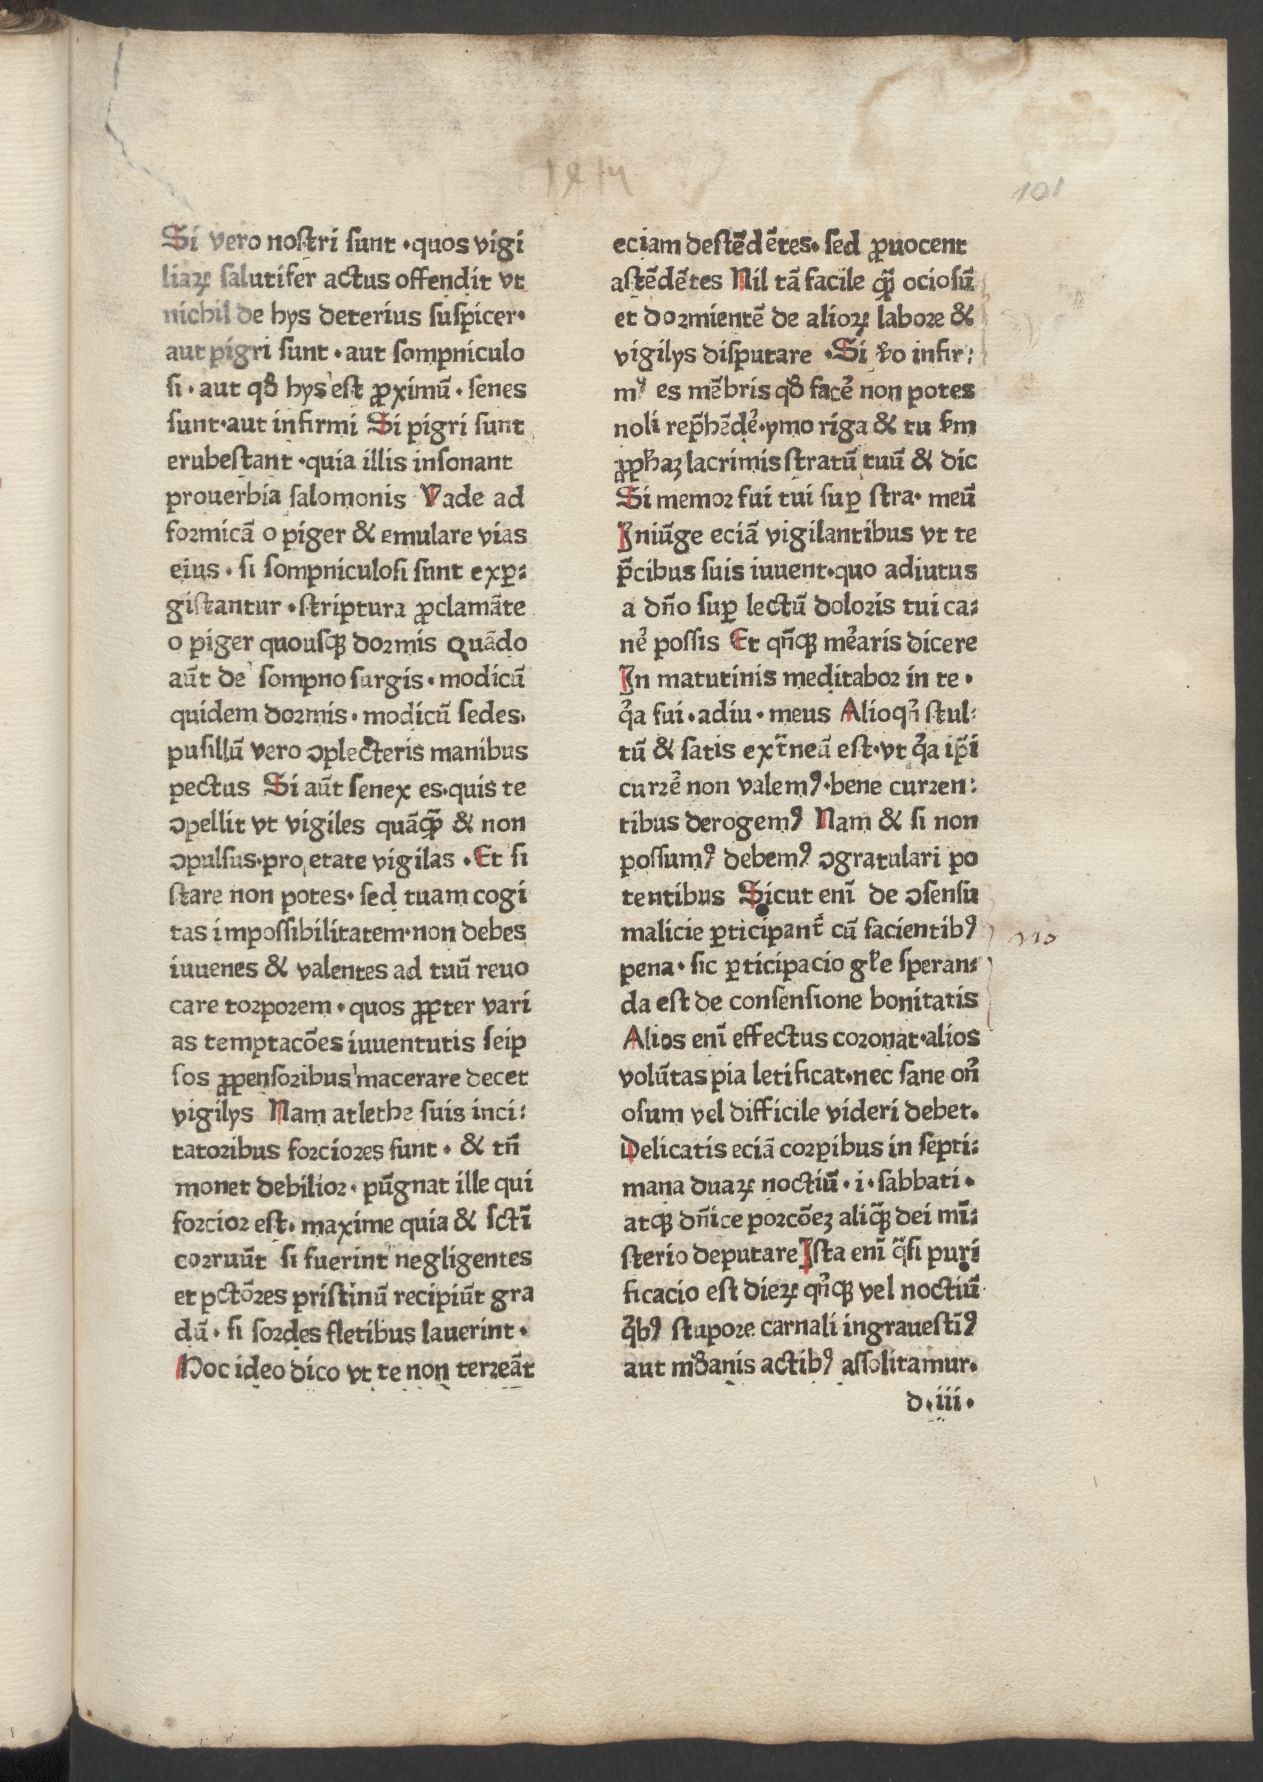 101
Si vero nostri sunt ·quos vigi
liaꝝ salutifer actus offendit vt
nichil de hys deterius suspicer·
aut pigri sunt · aut sompniculo
si · aut qđ hys est ꝓximū · senes
sunt·aut infirmi Si pigri sunt
erubescant ·quia illis insonant
prouerbia salomonis Vade ad
formicā o piger & emulare vias
eius · si sompniculosi sunt exꝑ:
giscantur · scriptura ꝓclamāte
o piger quousqꝫ dormis Quādo
aūt de sompno surgis · modicū
quidem dormis · modicū sedes·
pusillū vero ↄplecteris manibus
pectus Si aūt senex es·quis te
ↄpellit vt vigiles quāqꝫ̄ & non
ↄpulsus·pro etate vigilas · Et si
stare non potes· sed tuam cogi
tas impossibilitatem·non debes
iuuenes & valentes ad tuū reuo
care torporem · quos ꝓpter vari
as temptacōes iuuentutis seip
sos ꝓpensoribus macerare decet
vigilys Nam atlethe suis inci:
tatoribus forciores sunt · & tn̄
monet debilior· pūgnat ille qui
forcior est· maxime quia & sctī
corruūt si fuerint negligentes
et pctōres pristinū recipiūt gra
dū · si sordes fletibus lauerint ·
Hoc ideo dico vt te non terreāt
eciam descēdētes· sed ꝓuocent
ascēdētes Nil tā facile qꝫ̄ ociosū
et dormientē de alioꝝ labore &
vigilys disputare ·Si v̄o infir:
mꝰ es mēbris qđ facẻ non potes
noli rep̄hēdẻ·ymo riga & tu ẜm
ꝓpħaꝫ lacrimis stratū tuū & dic
Si memor fui tui suꝑ stra· meū
Iniūge eciā vigilantibus vt te
p̄cibus suis iuuent·quo adiutus
a dn̄o suꝑ lectū doloris tui ca:
nẻ possis Et qn̄qꝫ mẻaris dicere
In matutinis meditabor in te ·
qͥa fui · adiu · meus Alioqͥn stul:
tū & satis exͭneū est·vt qͥa ip̄i
currẻ non valemꝰ·bene curren:
tibus derogemꝰ Nam & si non
possumꝰ debemꝰ ↄgratulari po
tentibus Sicut enī de ↄsensu
malicie ꝑticipant̉ cū facientibꝰ
pena · sic ꝑticipacio gƚe speran:
da est de consensione bonitatis
Alios enī effectus coronat·alios
volūtas pia letificat·nec sane on̉
osum vel difficile videri debet·
Delicatis eciā corꝑibus in septi:
mana duaꝝ noctiū · i · sabbati ·
atqꝫ dn̄ice porcōeꝫ aliqꝫ̄ dei mī:
sterio deputare Ista enī qͣsi puri
ficacio est dieꝝ qͥnqꝫ vel noctiū
qͥbꝰ stupore carnali ingrauescīꝰ
aut mūdanis actibꝰ assolitamur·
d·iii·